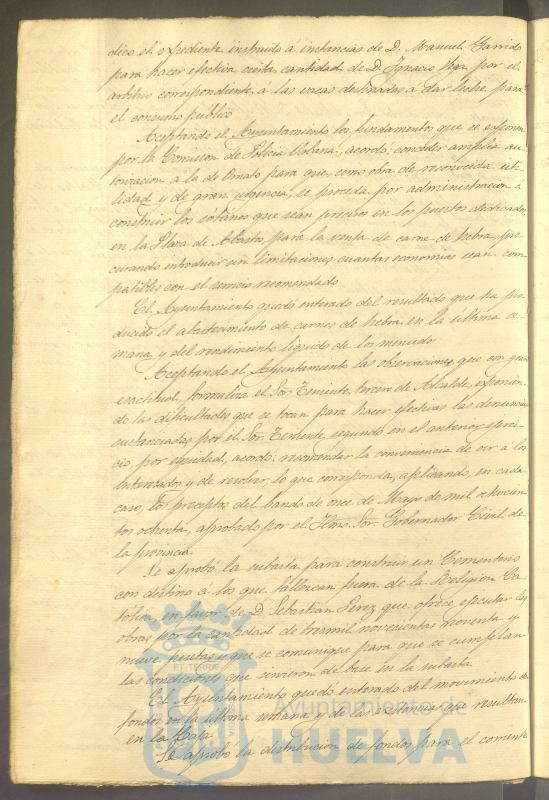 dico el expediente instruido á instancias de D. Manuel Garrido
para hacer efectiva cierta cantidad de D. Ignacio por el
arbitrio correspondiente á las vacas destinadas á dar leche para
el consumo publico
Aceptando el Ayuntamiento los fundamentos que se expone
por la Comision de Policia Urbana, acordó: conceder amplia au-
torizacion á la de Ornato para que, como obra de reconocida uti-
lidad y de gran urgencia, se proceda por administracion á
construir los sotanos que sean precisos en los puestos dedicados,
en la Plaza de Abastos, para la venta de carne de hebra, pro-
curando introducir sin limitaciones cuantas economias sean com-
patibles con el servicio recomendado
El Ayuntamiento quedó enterado del resultado que ha pro-
ducido el abastecimiento de carnes de hebra en la última se-
mana, y del rendimiento liquido de los menudos
Aceptando el Ayuntamiento las observaciones que con gran
exactitud, formaliza el Sor. Teniente tercero de Alcalde, exponien-
do las dificultades que se tocan para hacer efectivas las denuncias
sustanciadas por el Sor. Teniente segundo en el anterior ejerci-
cio, por equidad, acordó: recomendar la conveniencia de oir á los
interesados y de resolver lo que corresponda, aplicando, en cada
caso, los preceptos del bando de once de Mayo de mil ochocien-
tos ochenta, aprobado por el Ilmo. Sor. Gobernador Civil de
la provincia
Se aprobó la subasta para construir un Cementerio
con destino á los que fallezcan fuera de la Religion Ca-
tólica, en favor de D. Sebastian Perez que ofrece ejecutar las
obras por la cantidad de tres mil novecientas noventa y
nueve pesetas y que se comunique para que se cumplan
las condiciones que sirvieron de base en la subasta.
El Ayuntamiento quedó enterado del movimiento de
fondos en la última semana y de la existencia que resultan
en la Caja
Se aprobó la distribucion de fondos para el corriente
ET TERRÆ
Ayuntamiento de
HUELVA